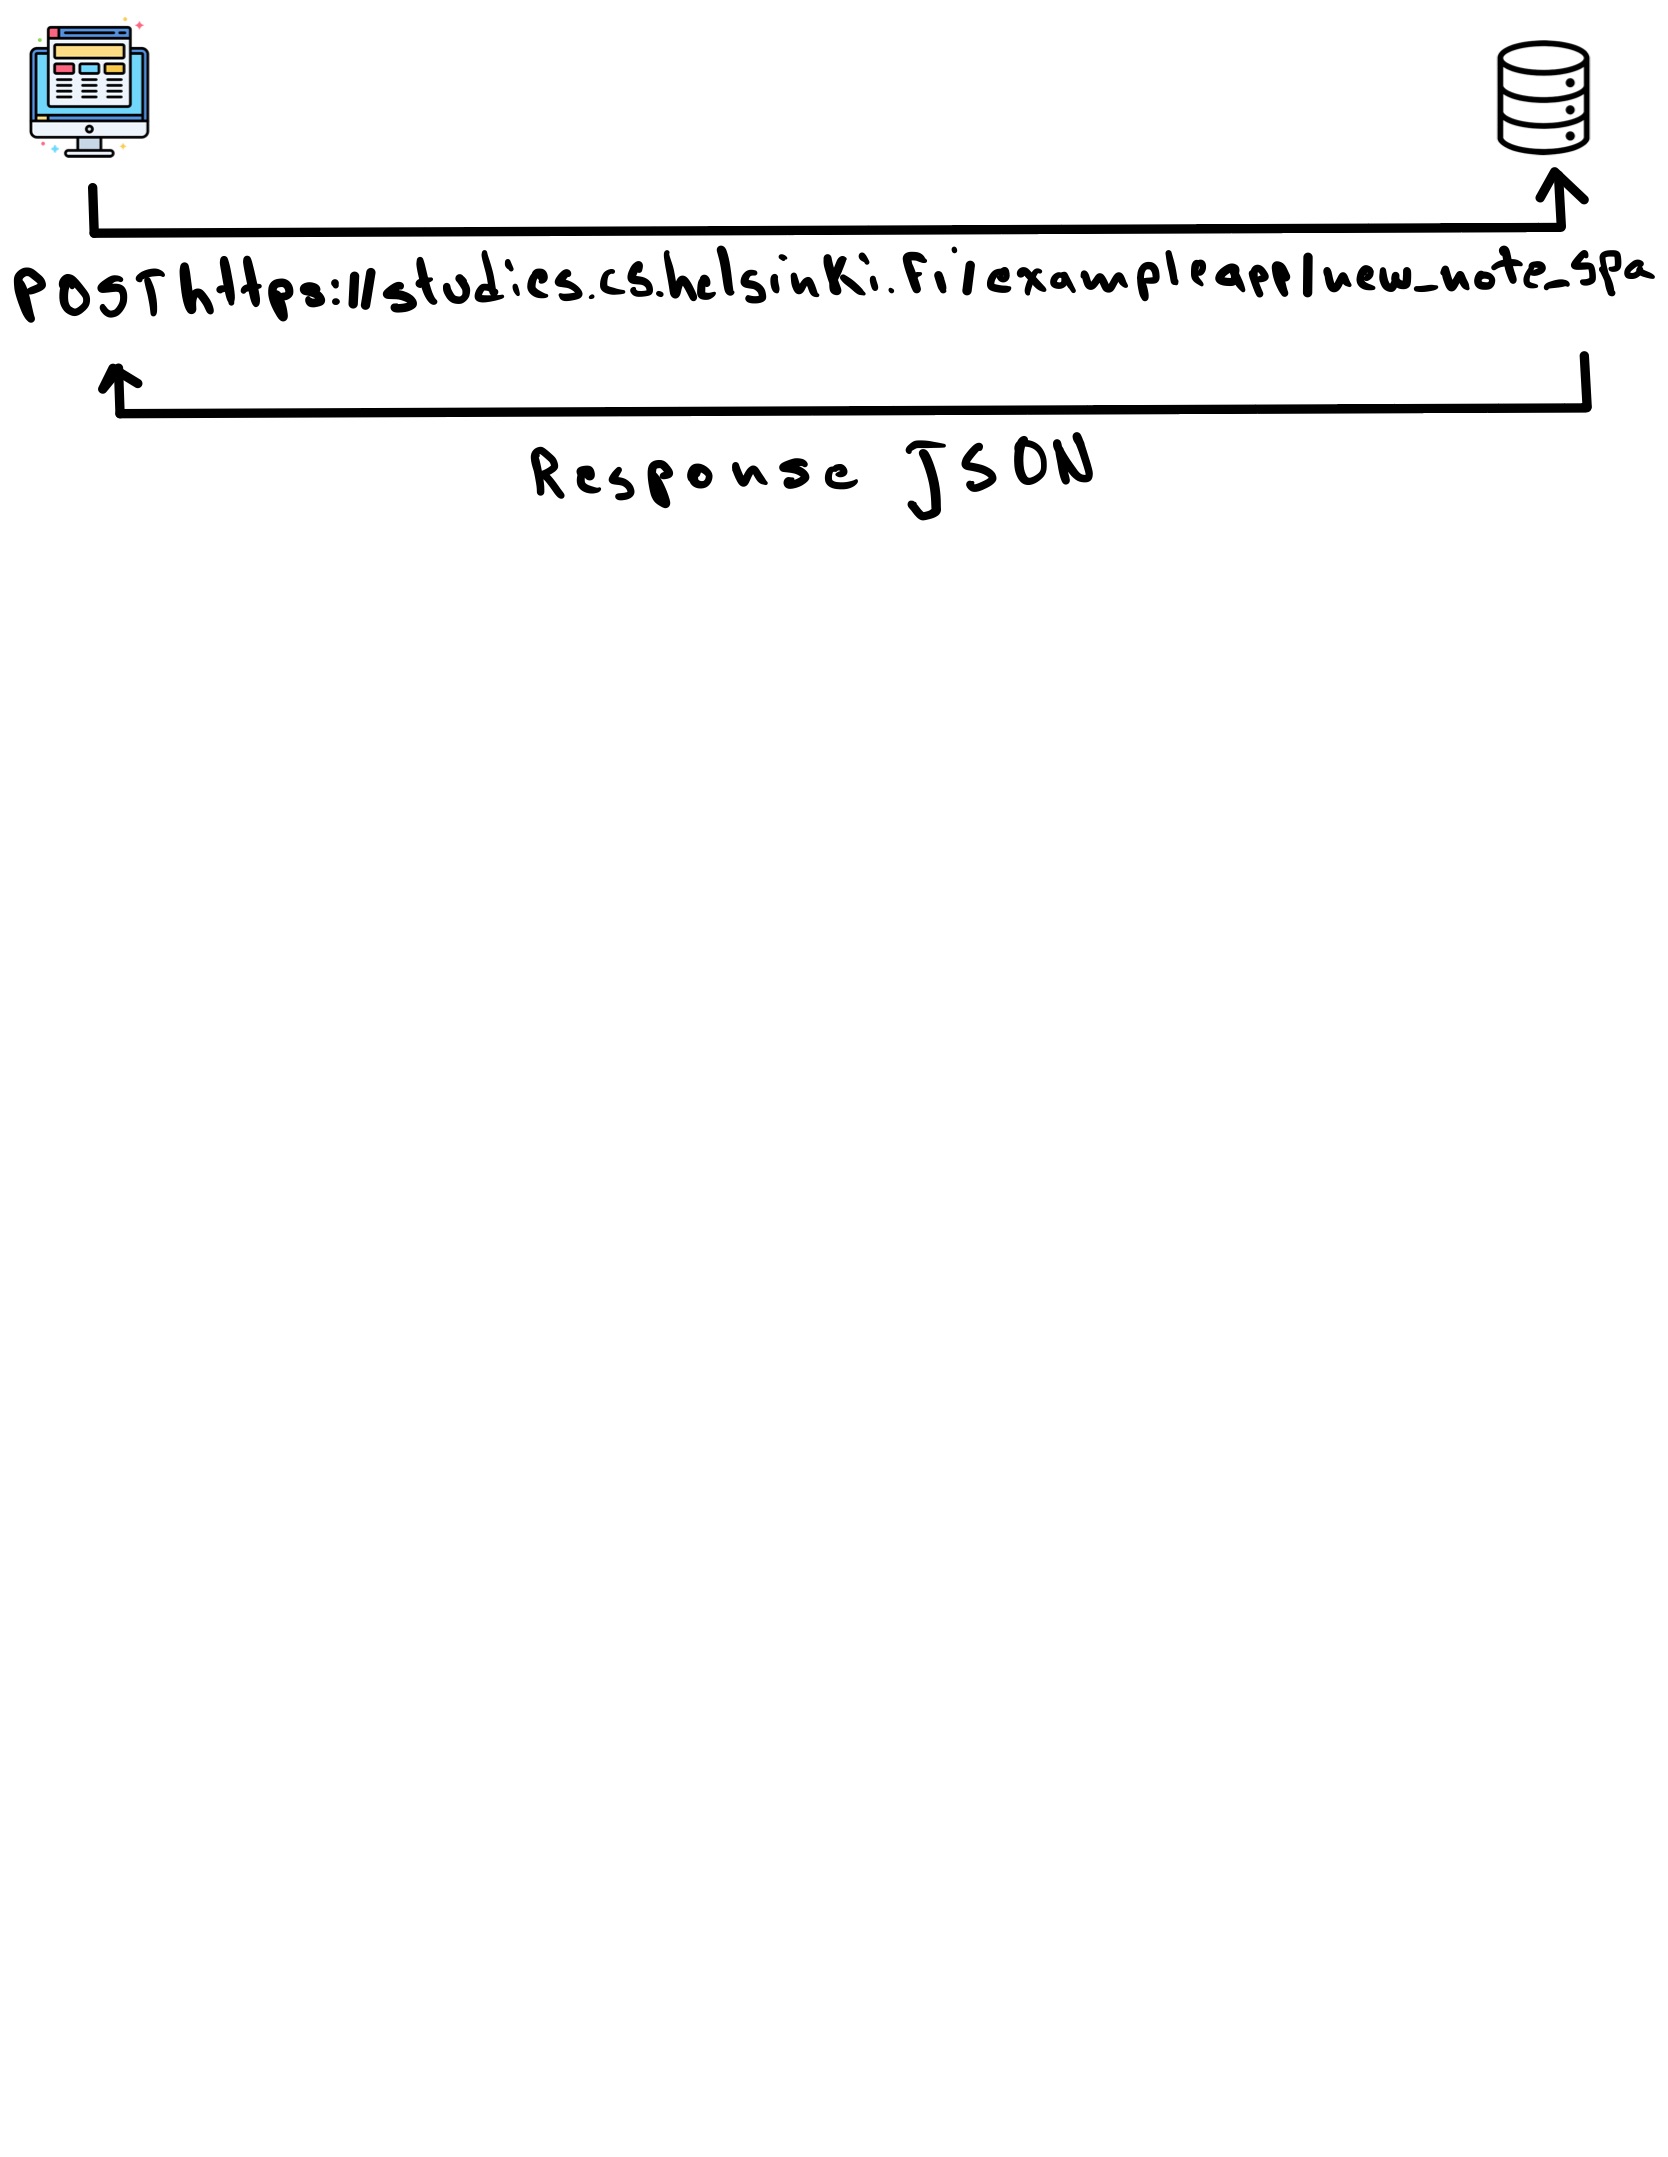 POST https://studies.cs.helsinki.fi/exampleapp/new_note_spa
Response JSON